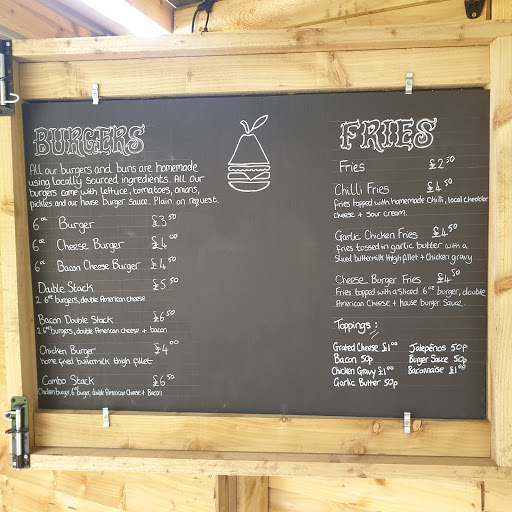 BURGERS
All our burgers and buns are homemade
using locally sourced ingredients. All our
burgers come with lettuce, tomatoes, onions,
pickles and our house burger Sauce. Plain on request.
6oz Burger £3.50
6oz Cheese Burger £4.00
6oz Bacon Cheese Burger £4.50
Double Stack £5.50
2 6oz burgers, double American cheese
Bacon Double Stack £6.50
2 6oz burgers, double American cheese + bacon
Chicken Burger £4.00
home fried buttermilk thigh fillet
Combo Stack £6.50
Chicken burger, 6oz burger, double American Cheese + Bacon
FRIES
Fries £2.50
Chilli Fries £4.50
fries topped with homemade Chilli, local cheddar
Cheese + Sour cream.
Garlic Chicken Fries £4.50
fries tossed in garlic butter with a
Sliced buttermilk thigh fillet + Chicken gravy
Cheese Burger Fries £4.50
Fries topped with a sliced 6oz burger, double
American Cheese + house burger Sauce.
Toppings:
Grated Cheese £1.00 Jalepeños 50p
Bacon 50p Burger Sauce 50p
Chicken Gravy £1.00 Baconnaise £1.00
Garlic Butter 50p